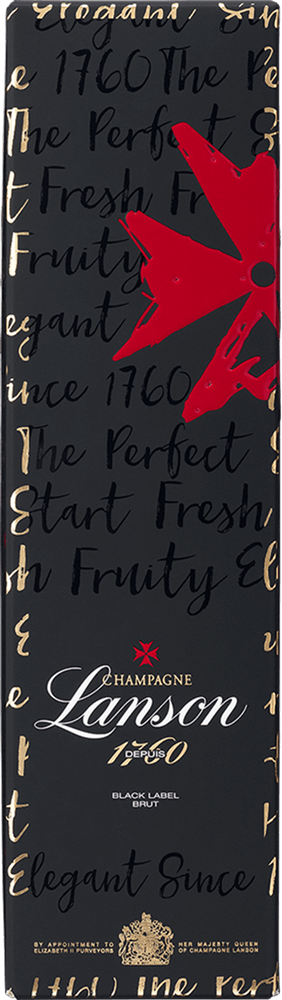 Elegant Sin
e 1760 The Pe
The Perfect S
t Fresh Fr
Fruity
egant
ince 1760
The Perfect S
Start Fresh
h Fruity El
CHAMPAGNE
Lanson
DEPUIS
1760
BLACK LABEL
BRUT
Elegant Since 1
BY APPOINTMENT TO HER MAJESTY QUEEN
ELIZABETH II PURVEYORS OF CHAMPAGNE LANSON
The Perf